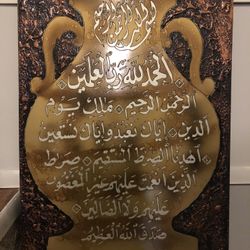 بسم الله الرحمن الرحيم
الحمد لله رب العلمين
الرحمن الرحيم ملك يوم
الدين اياك نعبد واياك نستعين
اهدنا الصرط المستقيم صرط
الذين انعمت عليهم غير المغضوب
عليهم ولا الضالين
صدق الله العظيم